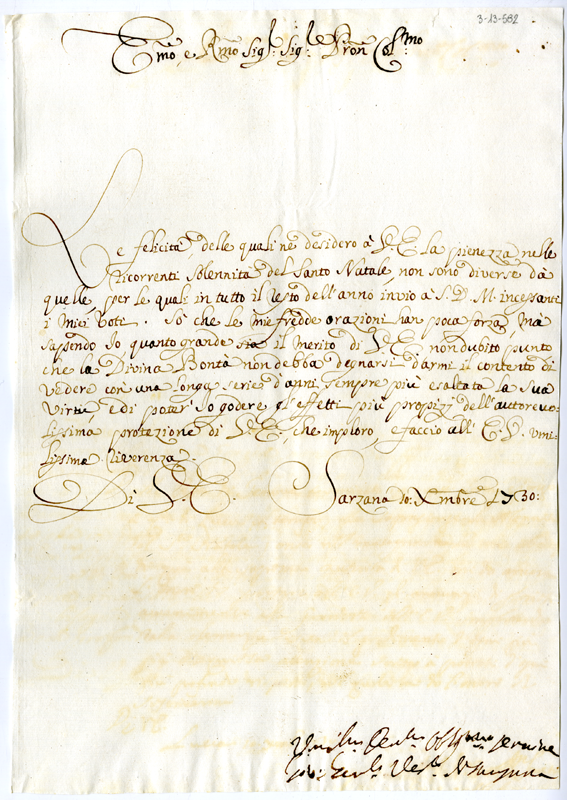 3-13-582
Emo, e Rmo Sig.r Sig.r e Pron Col.mo
Le felicità, delle quali ne desidero à V. E. la pienezza nelle
ricorrenti Solennità del Santo Natale, non sono diverse dà
quelle, per le quali in tutto il resto dell'anno invio à S. D. M. incessante
i miei Voti. Sò che le mie fredde orazioni han poca forza, mà
sapendo Io quanto grande sia il merito di V. E. non dubito punto
che la Divina Bontà non debba degnarsi d'armi il contento di
vedere con una longa serie d'anni sempre più esaltata la Sua
virtù, e di poter' Io godere gl'effetti più propizj dell'autorevo-
lissima protezione di V. E., che imploro, e faccio all' E. V. umi-
lissima riverenza.
Di V. E. Sarzana 10: Xmbre 1730:
Serv.re
Vesc.